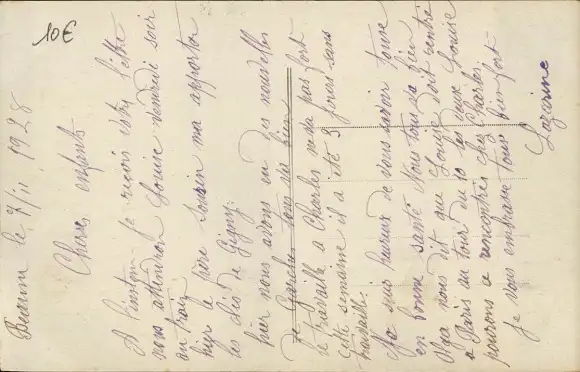 10€
le 7/11 1928
Chers enfants
A l'instant je reçois votre lettre
nous attendron Louise vendredi soir
au train
hier le père ma apporter
les clés de Gigny.
hier nous avons eu des nouvelles
de tous va bien
le travaille a Charles ne va pas fort
cette semaine il a été 3 jours sans
travailler.
suis heureux de vous savoir tous
en bonne santé nous tous va bien
Olga nous dit que Louise doit rentré
a Paris au tour du 10 les deux Louise
pourons ce rencontres chez Charles
je vous embrasse tous bien fort
Lazarine